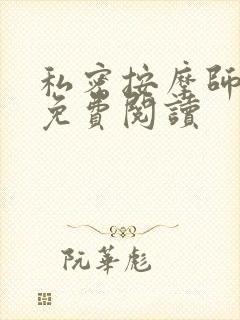 私密按摩師
免費閱讀
阮華彪